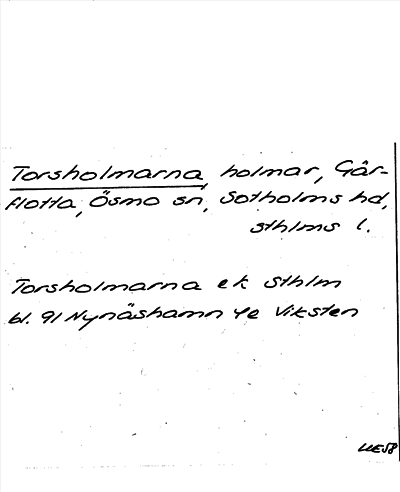 Torsholmarna, holmar, Går-
flotta, Ösmo sn, Sotholms hd,
sthlms l.
Torsholmarna ek Sthlm
bl. 91 Nynäshamn 4e Viksten
LLE58